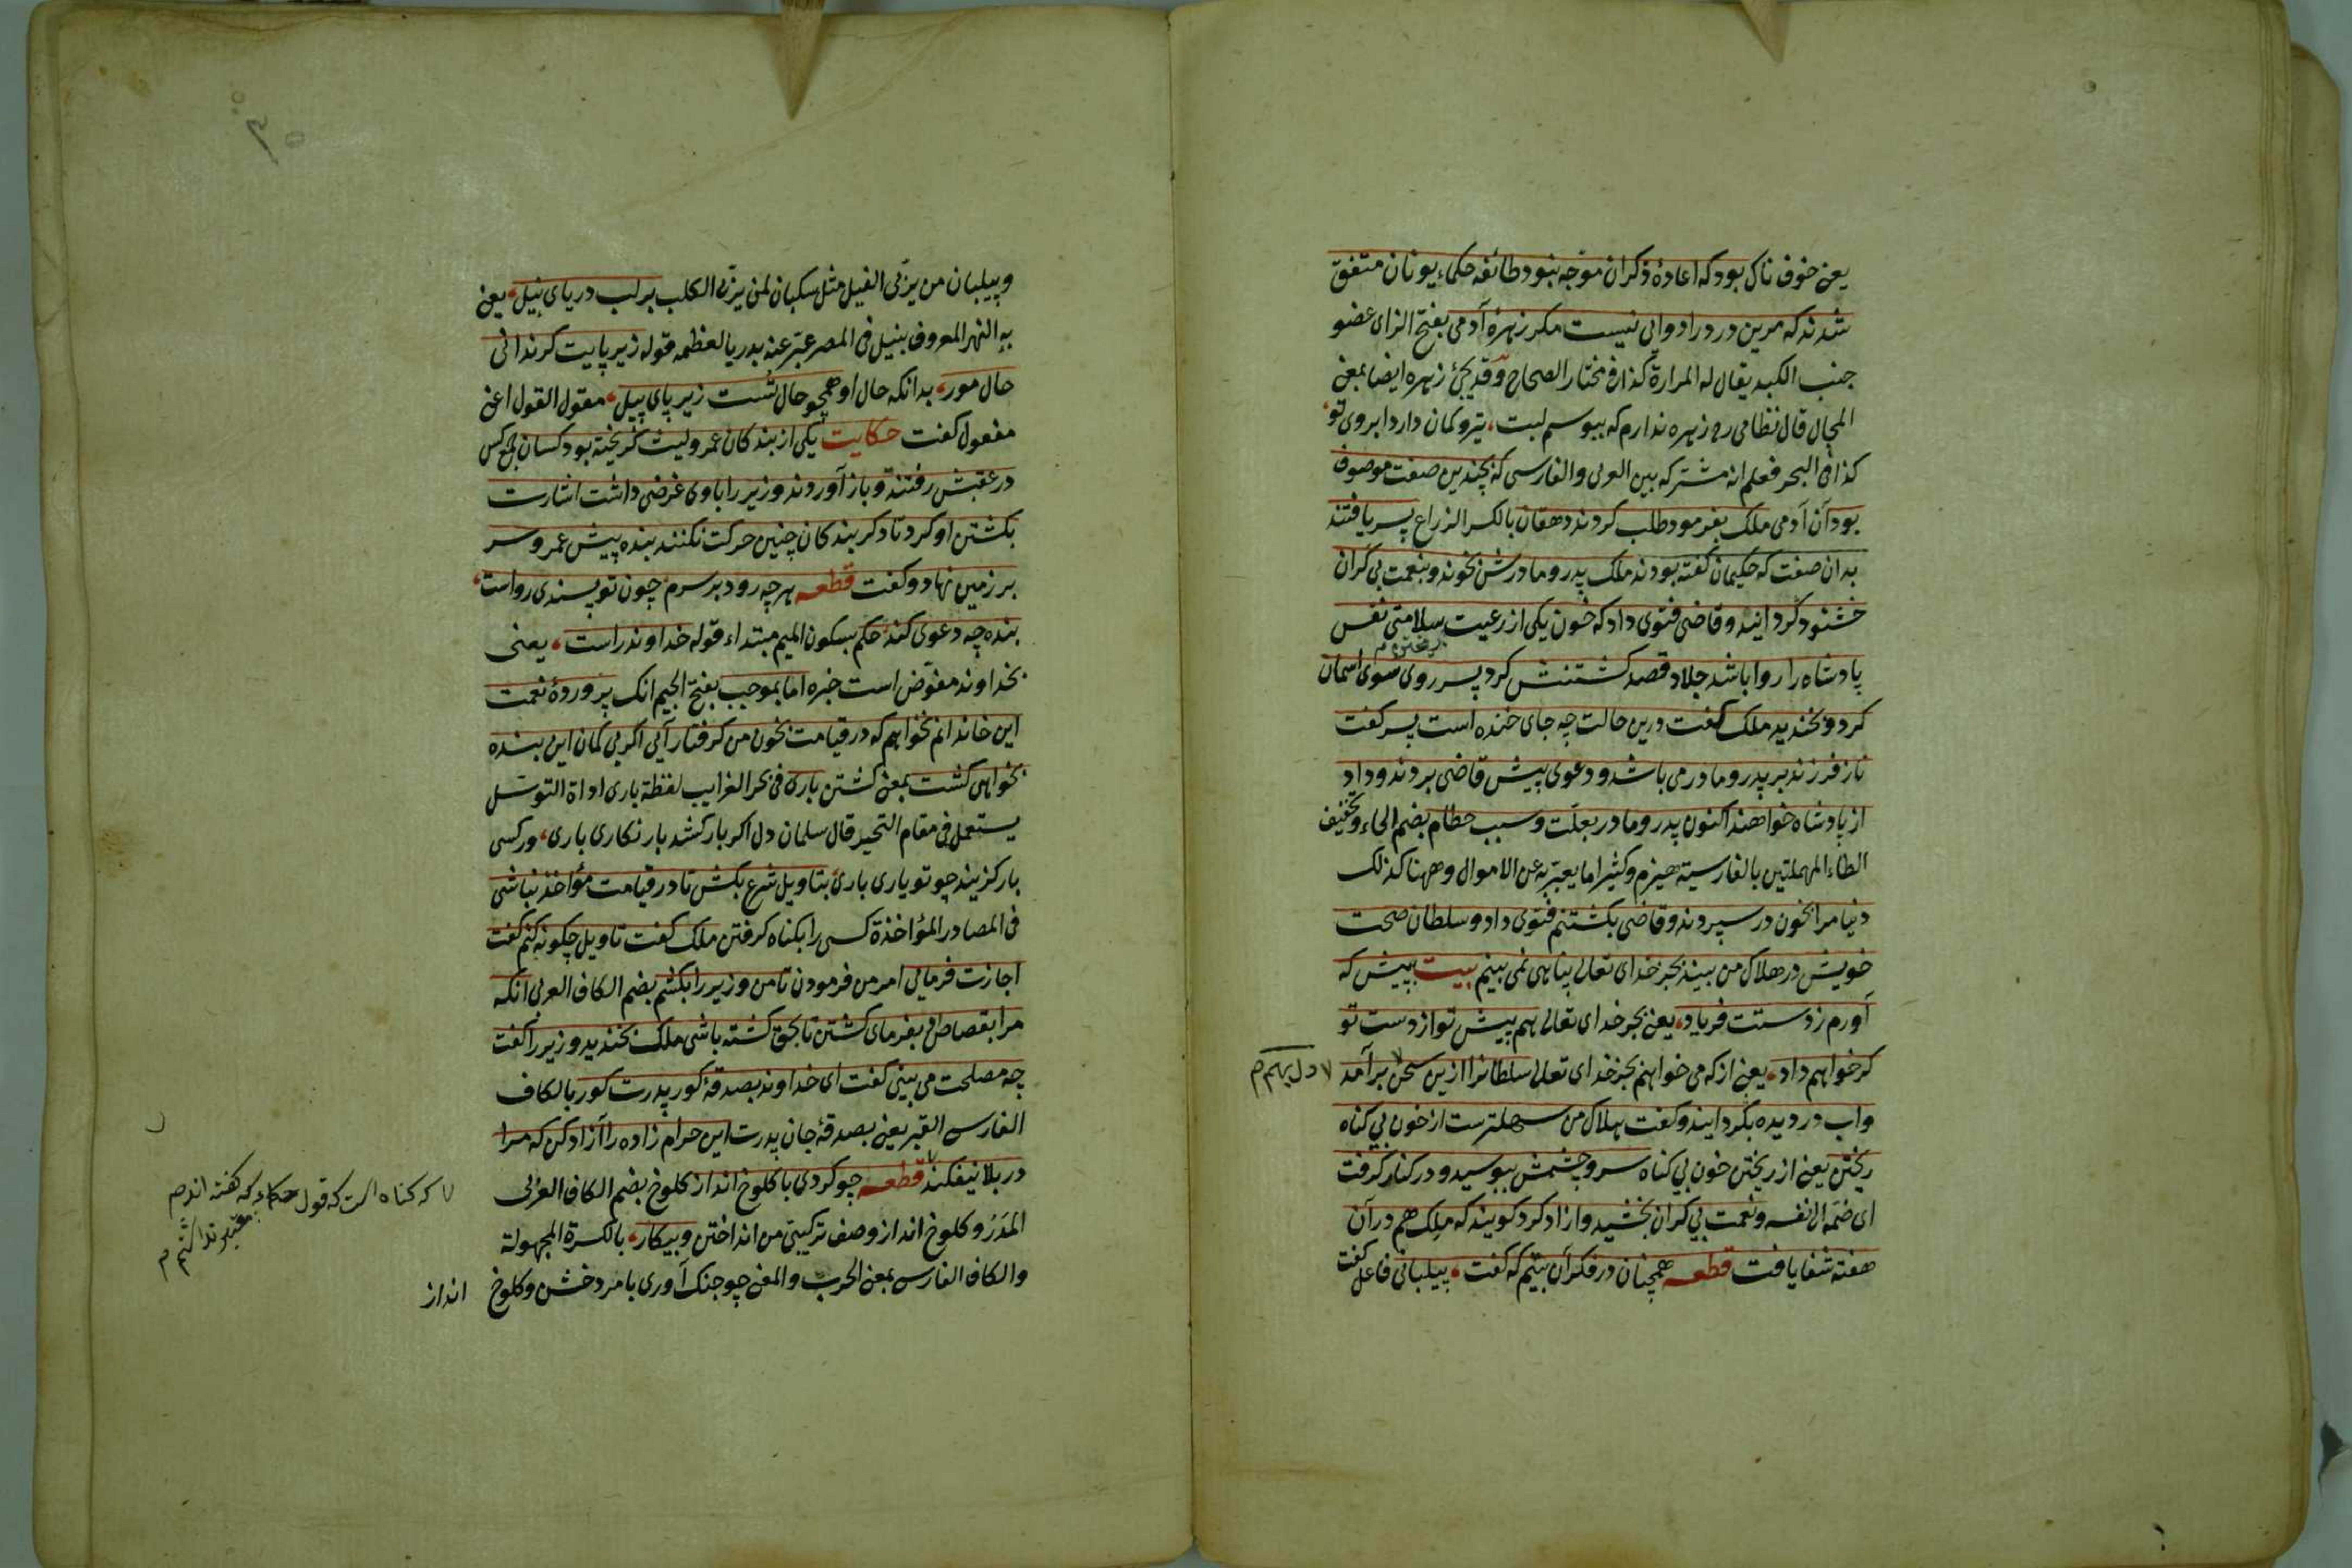 یعنی خوف ناک بود که اعادهٔ ذکر آن موّجه نبود طائفه حکماء یونان متفق
شدند که مرین درد را دوایی نیست مکر زهره آدمی بفتح الزای عضو
جنب الکبد یقال له المرارة کذا فی مختار الصحاح وقد یجئ زهره ایضا بمعنی
المجال قال نظامی رم زهره ندارم که ببوسم لبت، تیر و کمان دارد ابروی تو
کذا فی البحر فعلم انه مشترک بین العربی والفارسی که بچندین صفت موصوف
بود آن آدمی ملک بفرمود طلب کردند دهقان بالکسر الزراع پسر یافتند
بدان صفت که حکیمان گفته بودند ملک پدر و مادرش بخوند و بنعمت بی کران
خشنود گردانید و قاضی فتوی داد که خون یکی از رعیت سلامتی نفس
پادشاه را روا باشد جلاد قصد کشتنش کرد پسر روی سوی اسمان
کرد و بخندید ملک گفت درین حالت چه جای خنده است پسر گفت
ناز فرزند بر پدر و مادر می باشد و دعوی پیش قاضی بردند و داد
از پادشاه خواهند اکنون پدر و مادر بعلّت و سبب حطام بضم الحاء وتخفیف
الطاء المهملتین بالفارسیته هیزم وکثیرا ما یعبّر به عن الاموال وههنا کذلک
دنیا مرا بخون در سپردند و قاضی بکشتنم فتوی داد و سلطان صحت
خویش در هلاک من بیند بجز خدای تعالی پناهی نمی بینم بیت بپیش که
آورم ز دستت فریاد، یعنی بجز خدای تعالی هم پیش تو از دست تو
کر خواهم داد، یعنی از که می خواهم بجز خدای تعالی سلطانرا ازین سخن برآمد
دل بهم م
واب در دیده بگردانید و گفت هلاک من سهلترست از خون بی کناه
ریختن یعنی از ریختن خون بی کناه سر و چشمش ببوسید و در کنار کرفت
ای ضمّه الی نفسه ونعمت بی کران بخشید و ازاد کرد کویند که ملک هم در آن
هفته شفا یافت قطعه همچنان در فکر آن بیتم که گفت، پیلبانی فاعل گفت
وپیلبان من یربّی الفیل مثل سکبان لمن یربّی الکلب بر لب دریای نیل، یعنی
به النهر المعروف بنیل فی المصر عبّر عنه بدریا لعظمه قوله زیر پایت کر ندانی
حال مور، بدانکه حال او همچو حال تست زیر پای پیل، مقول القول اعنی
مفعول گفت حکایت یکی از بندکان عمرو لیث کریخته بود کسان جمع کس
در عقبش رفتند و باز آوردند وزیر را باوی غرضی داشت اشارت
بکشتن او کرد تا دکر بندکان چنین حرکت نکنند بنده پیش عمرو سر
بر زمین نهاد و کفت قطعه هر چه رود بر سرم چون تو پسندی رواست
بنده چه دعوی کند حکم بسکون المیم مبتداء قوله خداوند راست، یعنی
بخداوند مفوّض است خبره اما بموجب بفتح الجیم انک پروردهٔ نعمت
این خاندانم نخواهم که در قیامت بخون من کرفتار آیی اکر بی کمان این بنده
بخواهی کشت بمعنی کشتن باری فی بحر الغرایب لفظة باری اداة التوسّل
یستعمل فی مقام التحیر قال سلمان دل اکر بار کشد بار نکاری باری، ور کسی
بار کزیند چو تو یاری باری بتاویل شرع بکش تا در قیامت مؤاخذ نباشی
فی المصادر المؤاخذة کسی را بکناه کرفتن ملک گفت تاویل چکونه کنم گفت
اجازت فرمایی امر من فرمودن تا من وزیر را بکشم بضم الکاف العربی انکه
مرا بقصاص او بفرمای کشتن تا بحق کشته باشی ملک بخندید وزیر را گفت
چه مصلحت می بینی گفت ای خداوند بصدقهٔ کور پدرت کور بالکاف
الفارسی القبر یعنی بصدقهٔ جان پدرت این حرام زاده را آزاد کن که مرا
در بلا نیفکند قطعه چو کردی با کلوخ انداز کلوخ بضم الکاف العربی
که کناه است که قول حکماء که گفته اند م
معتبر نداشتم م
المَدَرُ و کلوخ انداز وصف ترکیبی من انداختن و پیکار، بالکسرة المجهولة
والکاف الفارسی بمعنی الحرب والمعنی چو جنک آوری با مردخشن وکلوخ
انداز